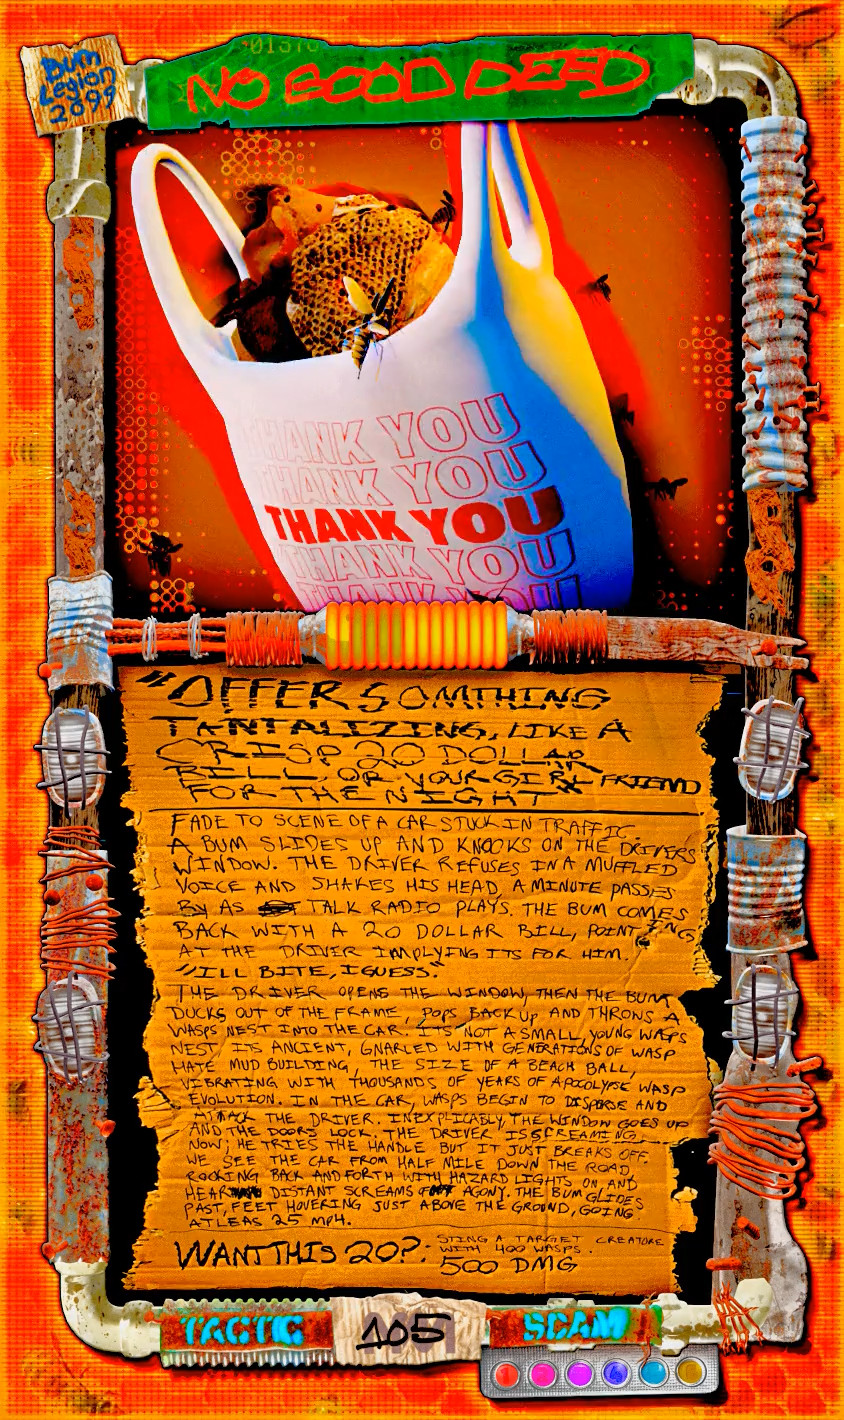 Bum
Legion
2099
NO GOOD DEED
THANK YOU
THANK YOU
THANK YOU
THANK YOU
THANK YOU
"OFFER SOMTHING
TANTALIZING, LIKE A
CRISP 20 DOLLAR
BILL, OR YOUR GIRLFRIEND
FOR THE NIGHT"
FADE TO SCENE OF A CAR STUCK IN TRAFFIC.
A BUM SLIDES UP AND KNOCKS ON THE DRIVERS
WINDOW. THE DRIVER REFUSES IN A MUFFLED
VOICE AND SHAKES HIS HEAD, A MINUTE PASSES
BY AS TALK RADIO PLAYS. THE BUM COMES
BACK WITH A 20 DOLLAR BILL, POINTING
AT THE DRIVER IMPLYING ITS FOR HIM.
"ILL BITE, I GUESS."
THE DRIVER OPENS THE WINDOW, THEN THE BUM
DUCKS OUT OF THE FRAME, POPS BACK UP AND THROWS A
WASPS NEST INTO THE CAR. ITS NOT A SMALL, YOUNG WASPS
NEST ITS ANCIENT, GNARLED WITH GENERATIONS OF WASP
HATE MUD BUILDING, THE SIZE OF A BEACH BALL,
VIBRATING WITH THOUSANDS OF YEARS OF APOCOLYPSE WASP
EVOLUTION. IN THE CAR, WASPS BEGIN TO DISPERSE AND
ATTACK THE DRIVER. INEXPLICABLY, THE WINDOW GOES UP
AND THE DOORS LOCK. THE DRIVER IS SCREAMING
NOW; HE TRIES THE HANDLE BUT IT JUST BREAKS OFF.
WE SEE THE CAR FROM HALF MILE DOWN THE ROAD,
ROCKING BACK AND FORTH WITH HAZARD LIGHTS ON, AND
HEAR DISTANT SCREAMS OF AGONY. THE BUM GLIDES
PAST, FEET HOVERING JUST ABOVE THE GROUND, GOING
ATLEAS 25 MPH.
WANT THIS 20?:
STING A TARGET CREATURE
WITH 400 WASPS.
500 DMG
TACTIC
105
SCAM